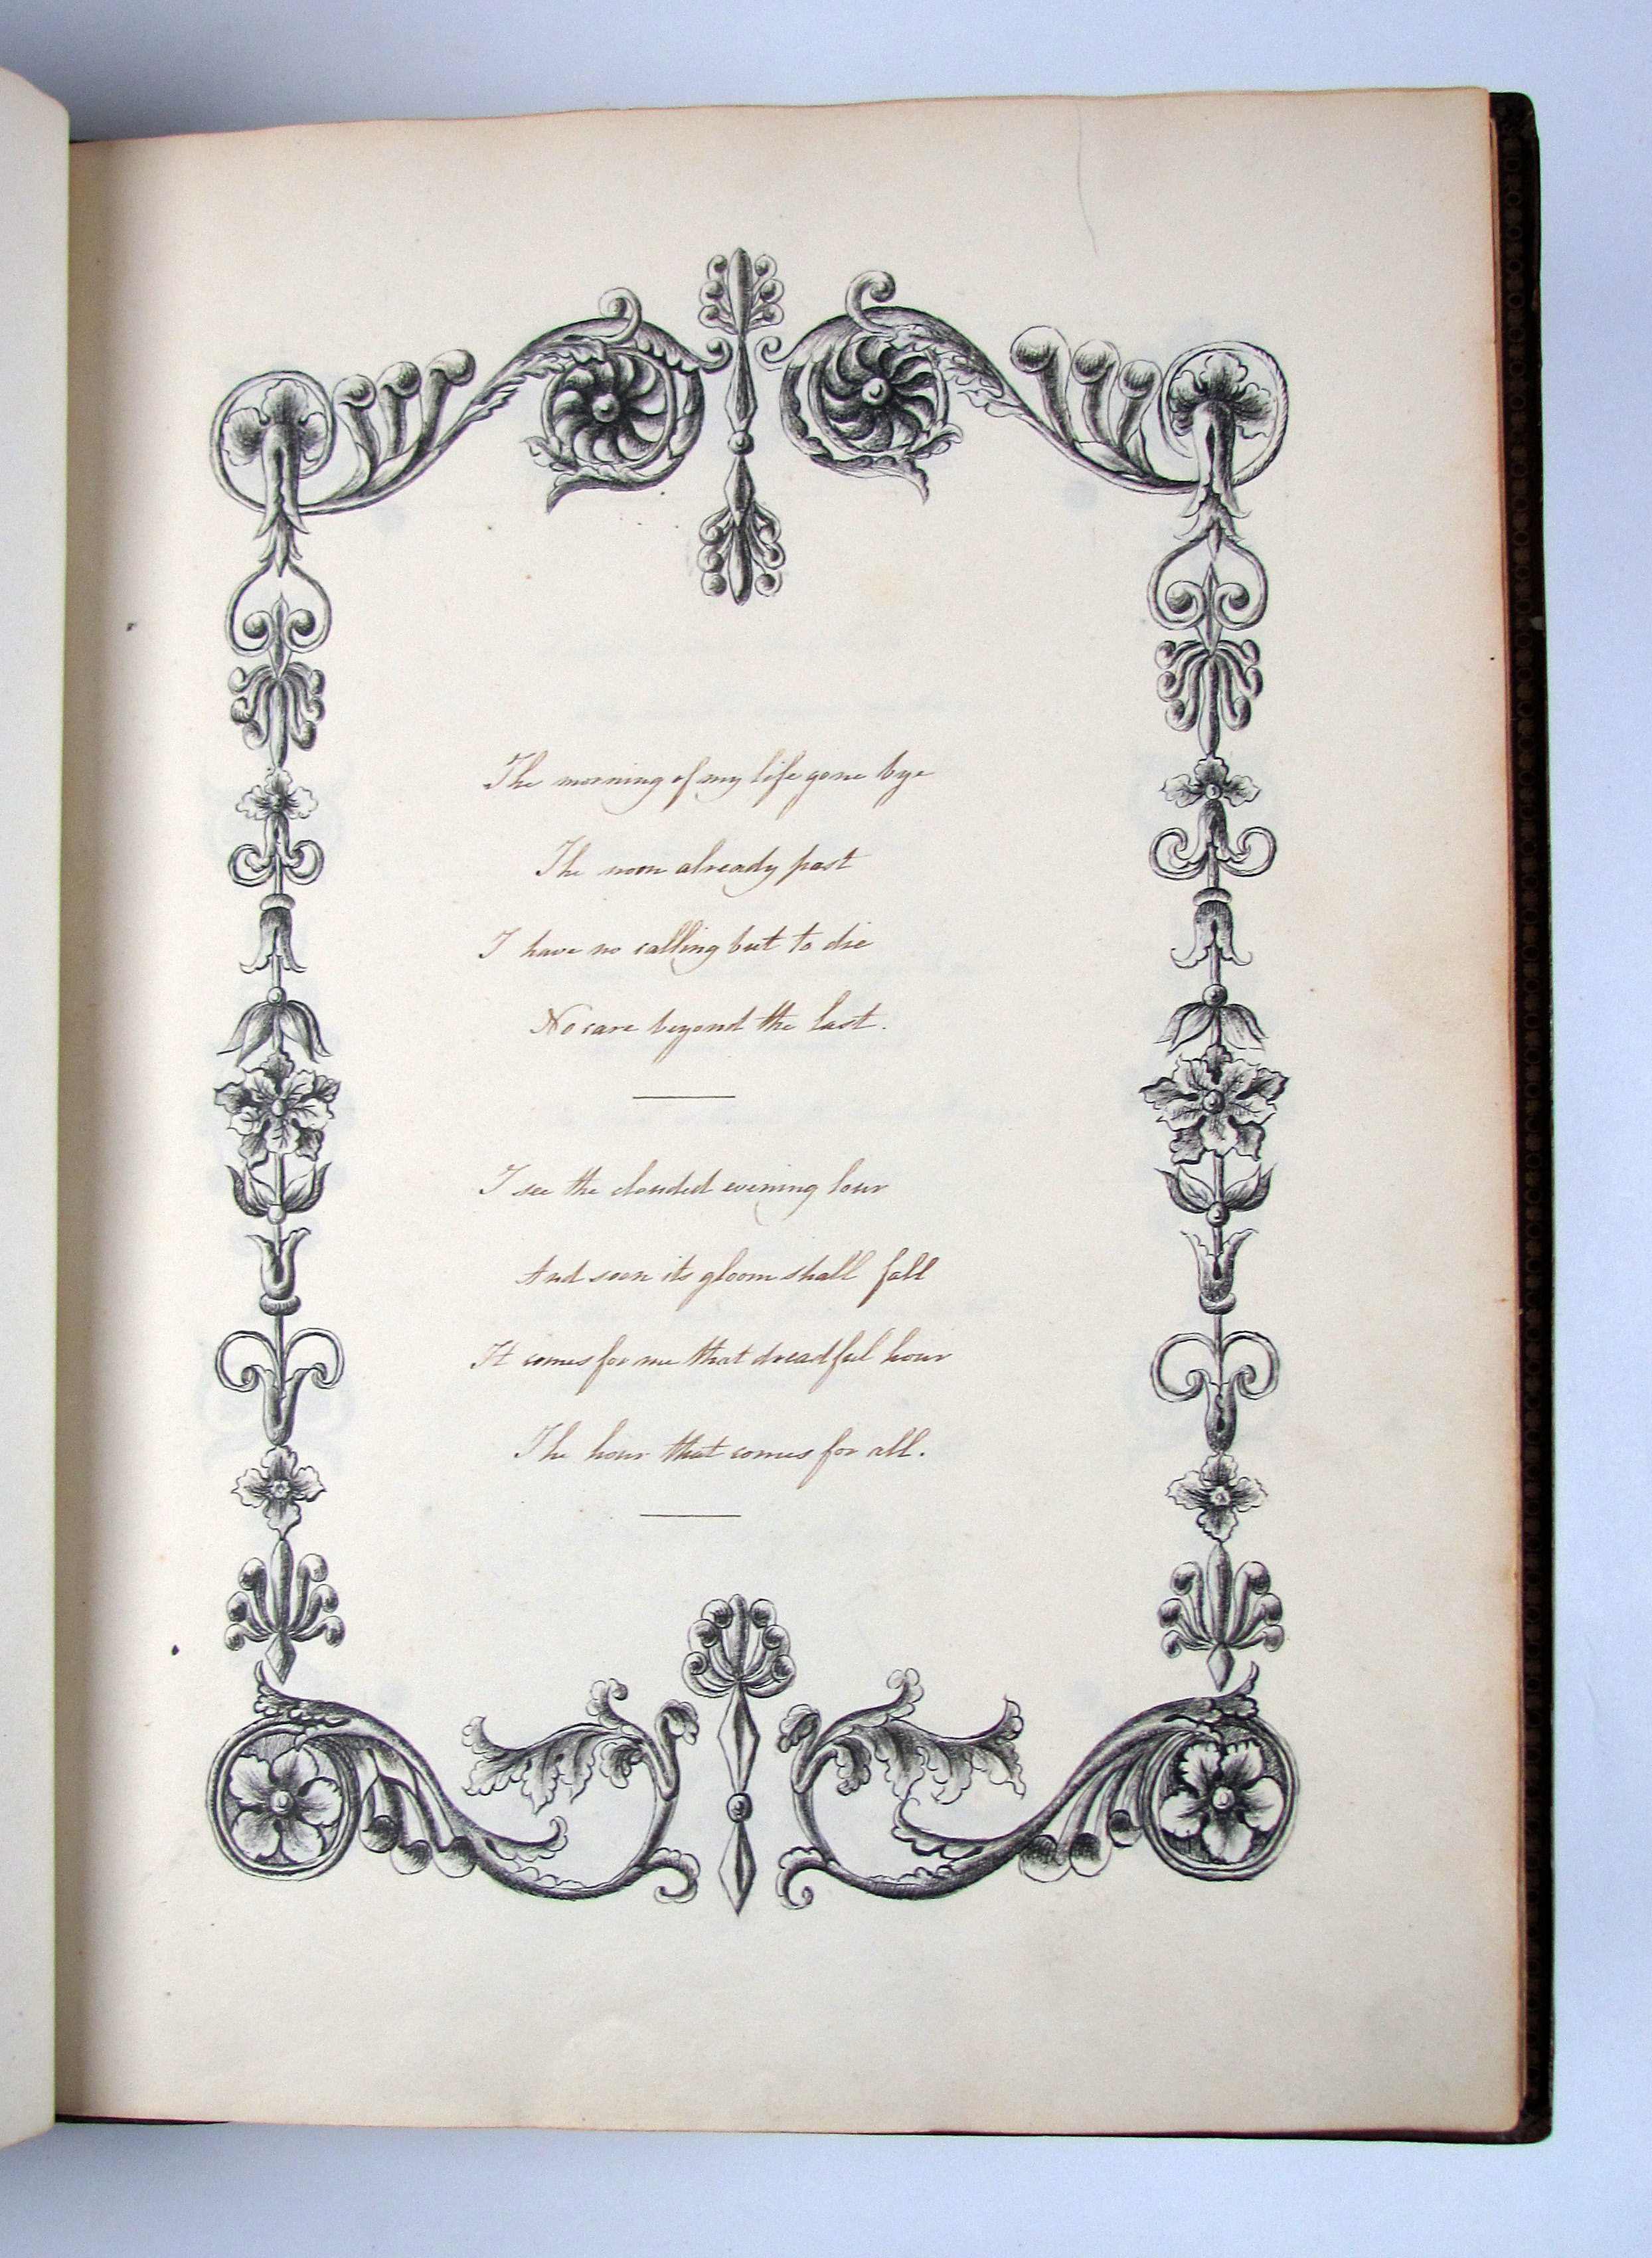 The morning of my life gone bye
The noon already past
I have no calling but to die
No care beyond the last.
I see the clouded evening lour
And soon its gloom shall fall
It comes for me that dreadful hour
The hour that comes for all.